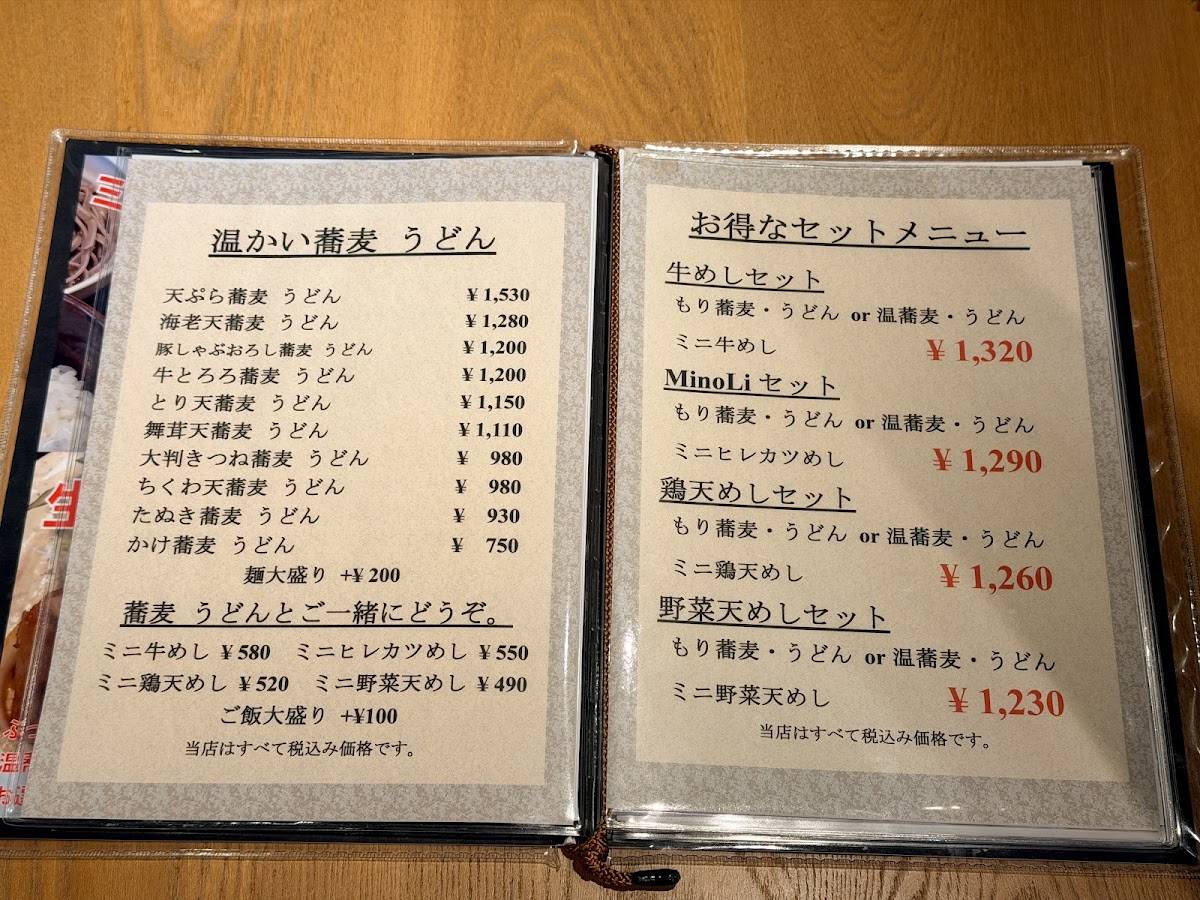 温かい蕎麦 うどん
天ぷら蕎麦 うどん ¥1,530
海老天蕎麦 うどん ¥1,280
豚しゃぶおろし蕎麦 うどん ¥1,200
牛とろろ蕎麦 うどん ¥1,200
とり天蕎麦 うどん ¥1,150
舞茸天蕎麦 うどん ¥1,110
大判きつね蕎麦 うどん ¥ 980
ちくわ天蕎麦 うどん ¥ 980
たぬき蕎麦 うどん ¥ 930
かけ蕎麦 うどん ¥ 750
麺大盛り +¥200
蕎麦 うどんとご一緒にどうぞ。
ミニ牛めし ¥580 ミニヒレカツめし ¥550
ミニ鶏天めし ¥520 ミニ野菜天めし ¥490
ご飯大盛り +¥100
当店はすべて税込み価格です。
お得なセットメニュー
牛めしセット
もり蕎麦・うどん or 温蕎麦・うどん
ミニ牛めし ¥1,320
MinoLi セット
もり蕎麦・うどん or 温蕎麦・うどん
ミニヒレカツめし ¥1,290
鶏天めしセット
もり蕎麦・うどん or 温蕎麦・うどん
ミニ鶏天めし ¥1,260
野菜天めしセット
もり蕎麦・うどん or 温蕎麦・うどん
ミニ野菜天めし ¥1,230
当店はすべて税込み価格です。